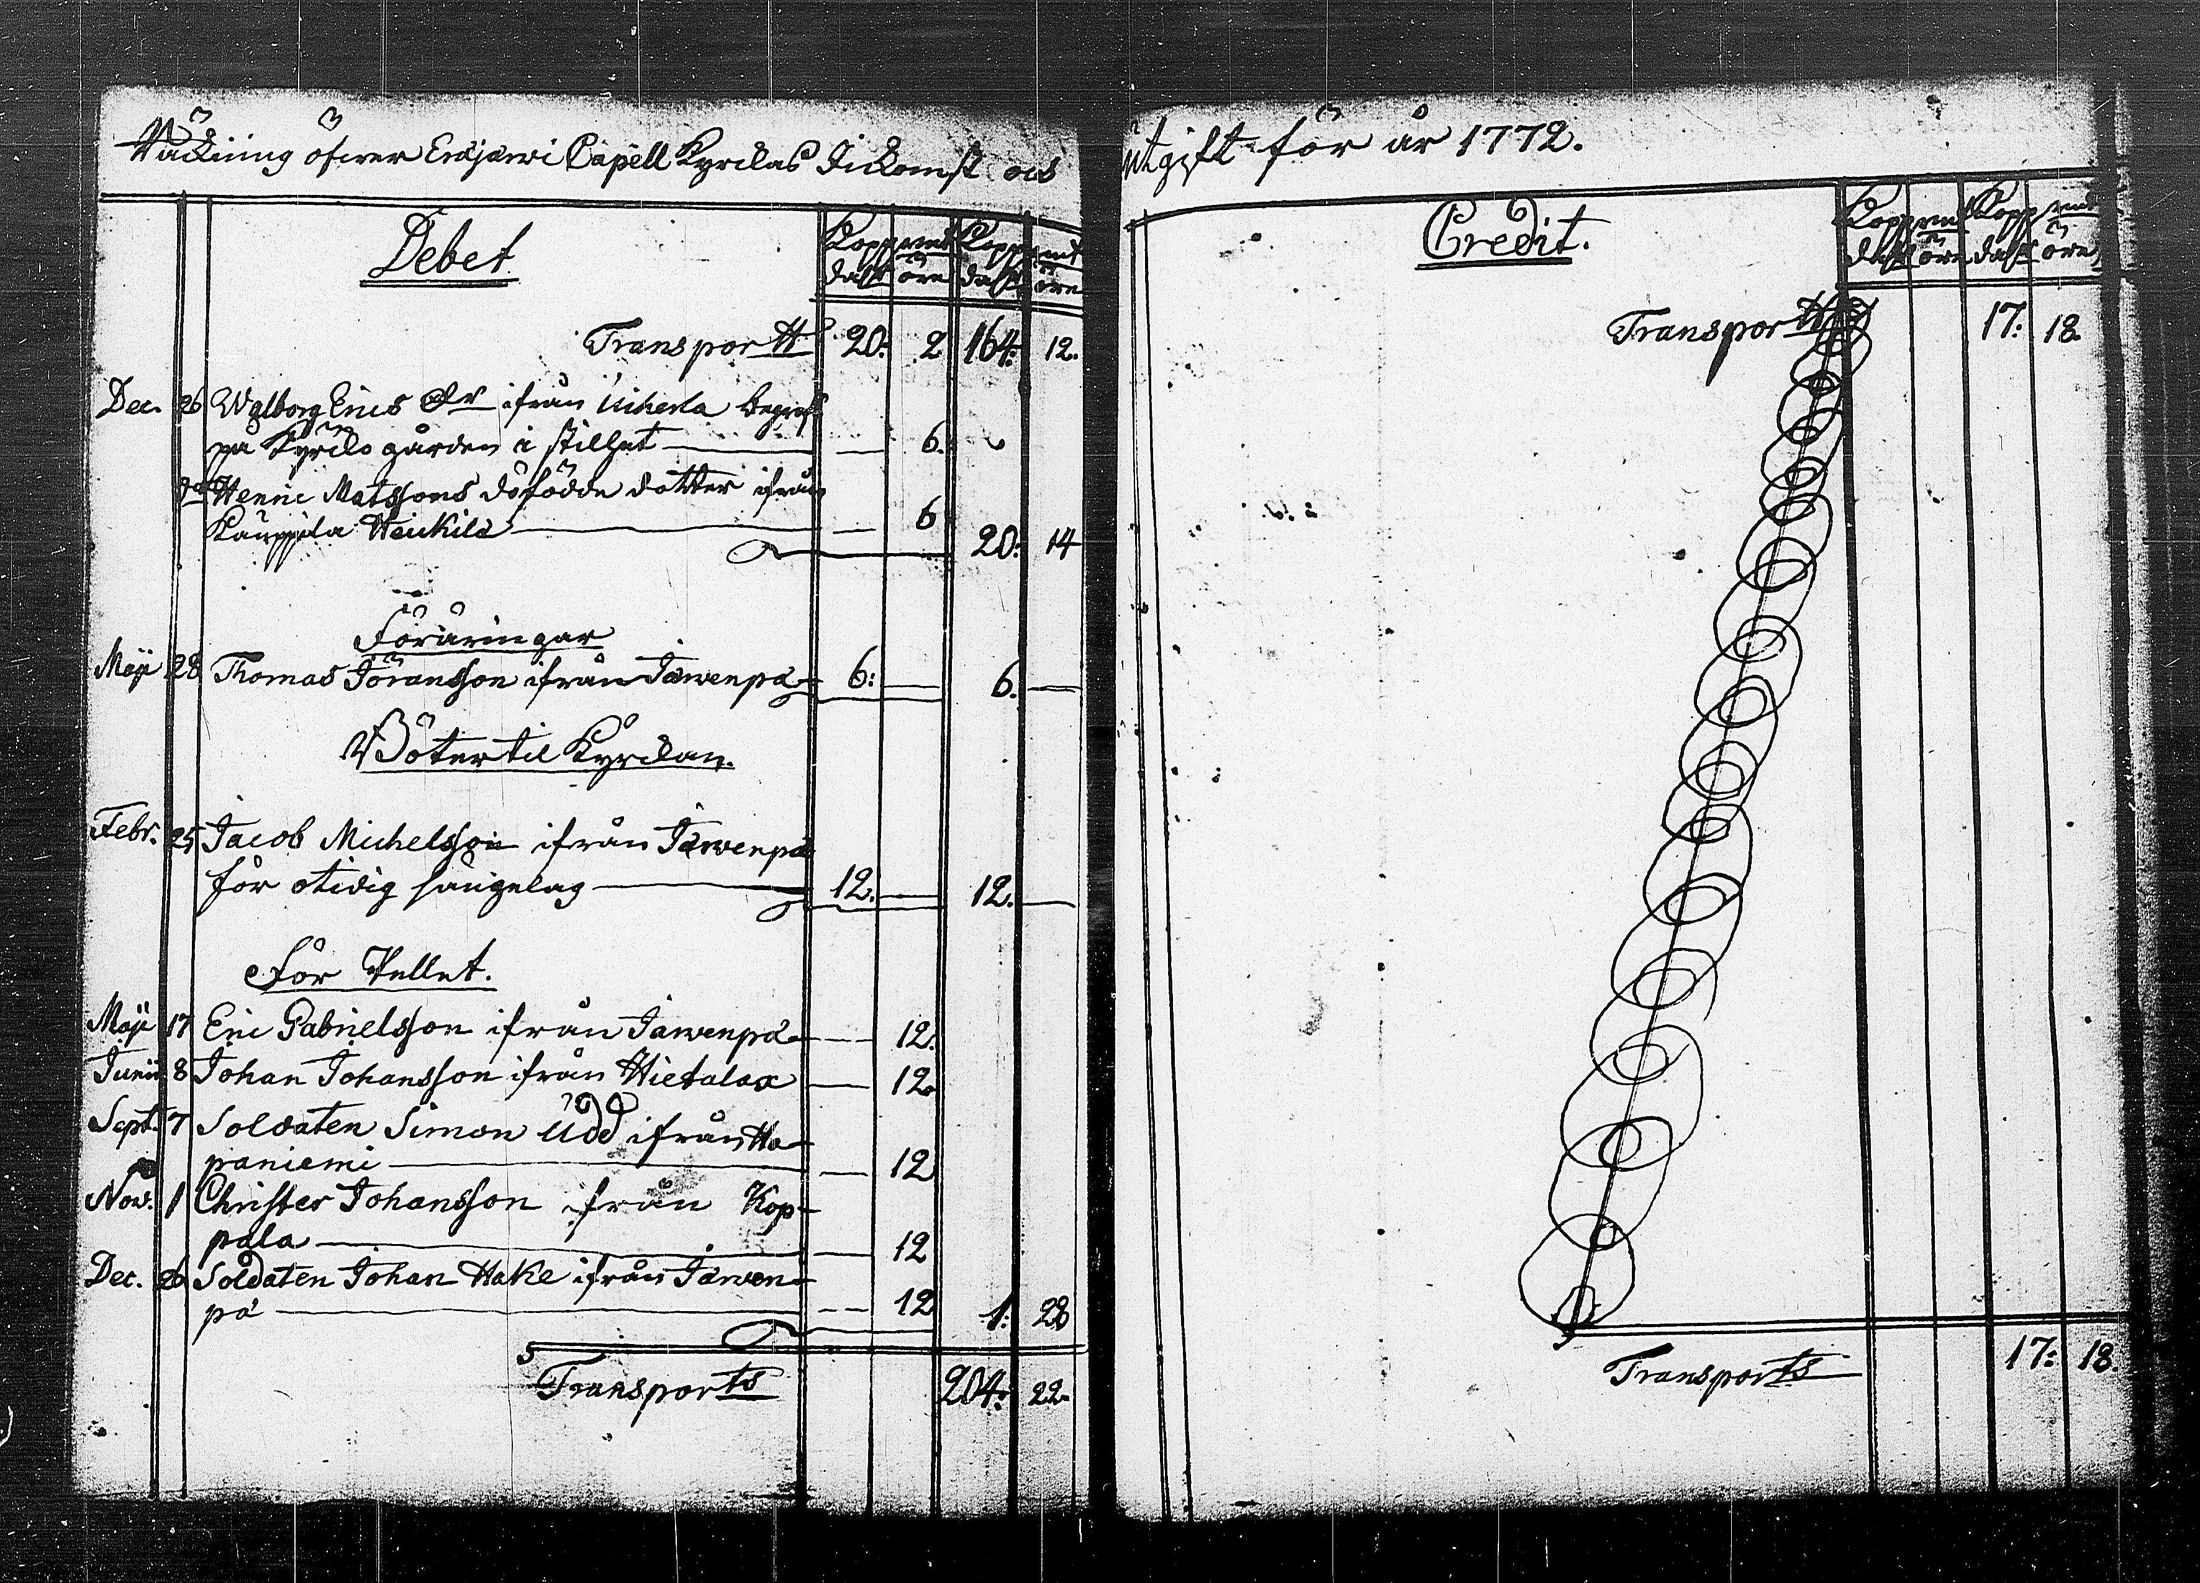 Räckning öfwer Enojerwi Capell Kyrckas Inckomst och
Debet
Kopp:mt Kopp:mt
dalr öre dalr öre
Transport 20: 2 164: 12.
Dec. 26 Walborg Erics dr ifrån begrafn
på Kyrcko gården i stillhet — 6.
do Henric Matssons döfödde dotter ifrån
Kauppila Heickilä — 6
20: 14
Föräringar
Maji 28 Thomas Jöransson ifrån Järwenpä 6: — 6. —
Böter til Kyrckan.
Febr. 25 Jacob Michelsson ifrån Järwenpä
för otidig sängelag — 12. — 12. —
För Stället.
Maji 17 Eric Gabrielsson ifrån Järwenpä — 12.
Junii 8 Johan Johansson ifrån Hietalax — 12.
Sept. 7 Soldaten Simon Udd ifrån Ha-
paniemi — 12
Nov. 1 Christer Johansson ifrån Kop-
pala — 12
Dec. 26 Soldaten Johan Hake ifrån Järwen-
pä — 12 1: 28
Transports 204: 22.
utgift för år 1772.
Credit.
Kopp:mt Kopp:mt
dalr öre dalr öre
Transport 17: 18.
Transports 17: 18.